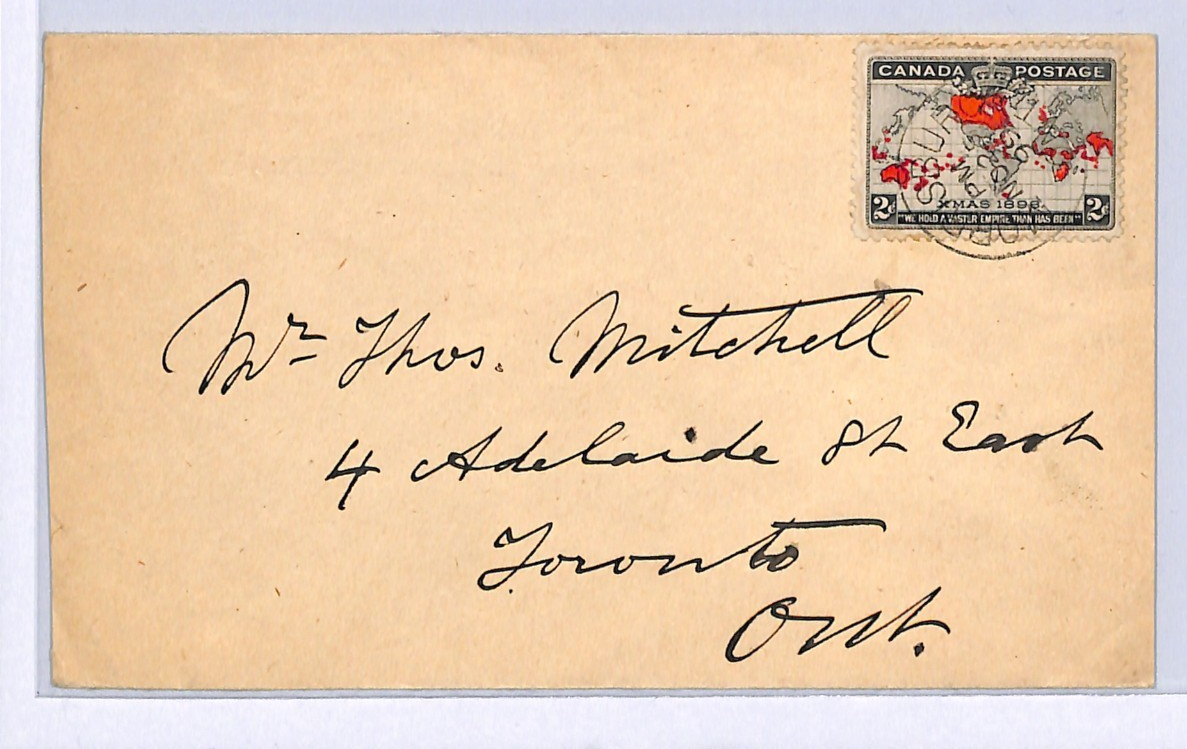 CANADA POSTAGE
XMAS 1898.
2c 2c
"WE HOLD A VASTER EMPIRE THAN HAS BEEN"
PM
Mr Thos. Mitchell
4 Adelaide St East
Toronto
Ont.